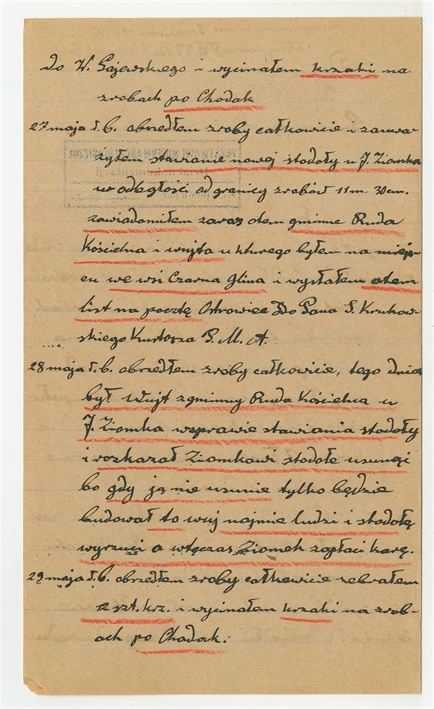 do W. Gajewskiego i wycinałem krzaki na
zrobach po Chodak
27 maja t. b. obszedłem zroby całkowicie i zauwa-
żyłem stawianie nowej stodoły u J. Ziomka
w odległości od granicy zrobów 11 m. 30 cm.
zawiadomiłem zaraz otem gminne Ruda
Kościelna i wujta u kturego byłem na miejs-
cu we wsi Czarna Glina i wysłałem otem
list na pocztę Ostrowiec Do Pana S. Krukow-
skiego Kustosza P. M. A.
28 maja t. b. obszedłem zroby całkowicie, tego dnia
był Wujt zgminny Ruda Kościelna u
J. Ziomka wsprawie stawiania stodoły
i rozkazał Ziomkowi stodołe usunąć
bo gdy ją nie usunie tylko będzie
budował to wuj najmie ludzi i stodołę
wyrzuci a wtączas Ziomek zapłaci karę.
29 maja t. b. obszedłem zroby całkowicie zebrałem
12 szt. krz. i wycinałem krzaki na zrob-
ach po Chodak.